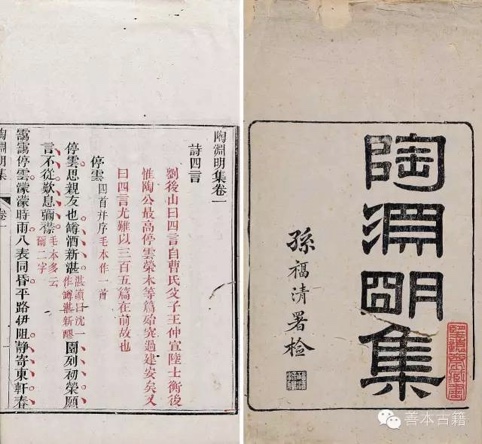 陶淵明集
孫福清署檢
陶淵明集卷一
詩四言
劉後山曰四言自曹氏父子王仲宣陸士衡後
惟陶公最高停雲榮木等篇殆突過建安矣又
曰四言尤難以三百五篇在前故也
停雲 四首并序 毛本作一首
停雲思親友也罇酒新湛 湛讀曰沈一作罇湛新醪 園列初榮願
言不從歎息彌襟 毛本多云爾二字
靄靄停雲濛濛時雨八表同昏平路伊阻靜寄東軒春
陶淵明集 卷一
善本古籍